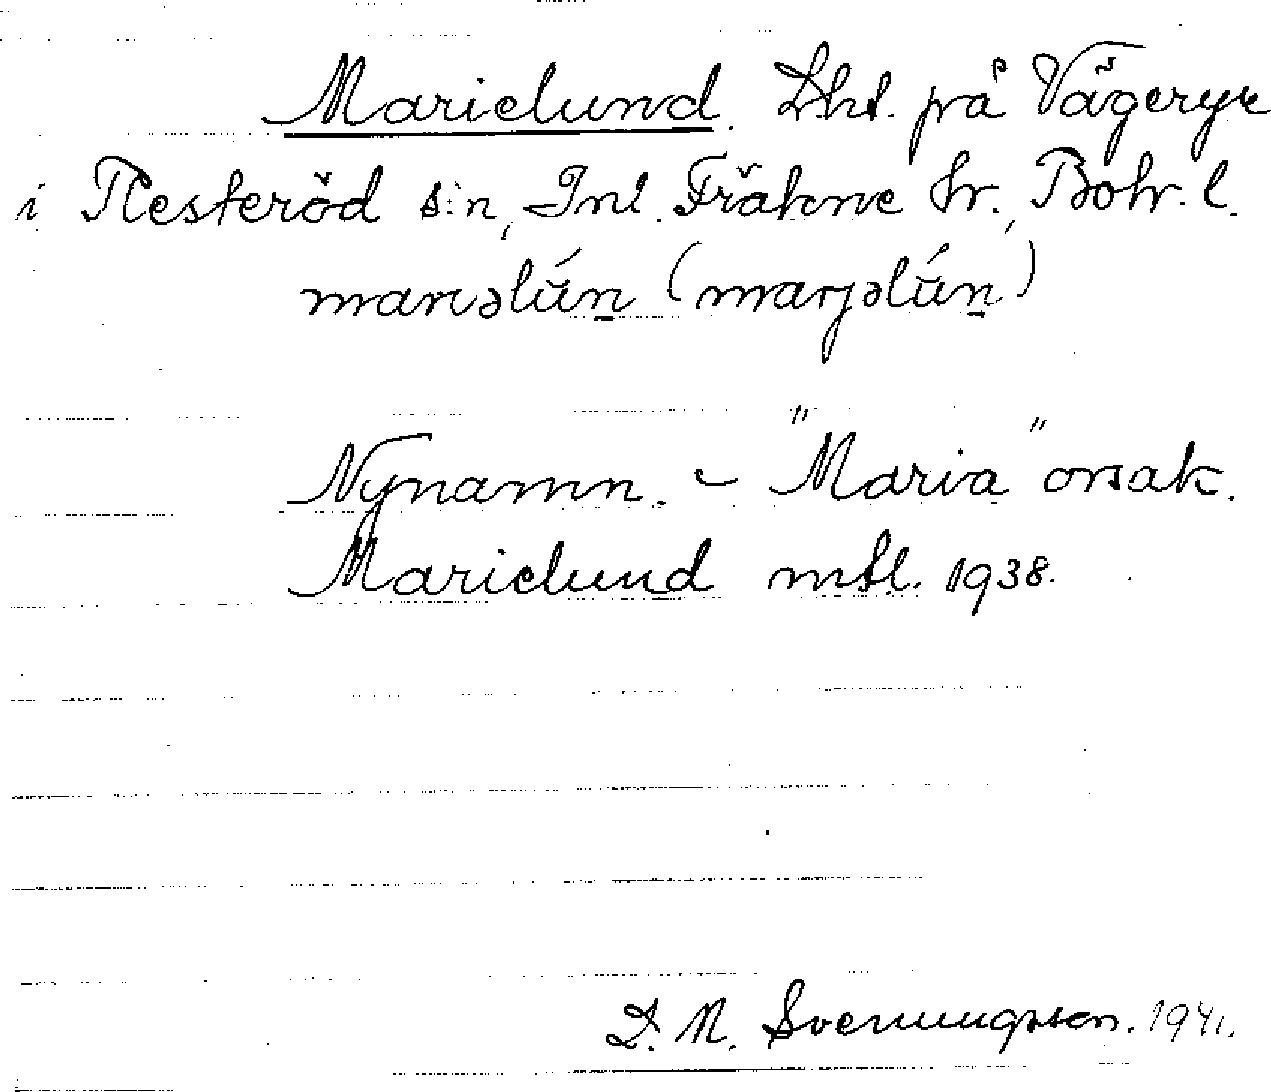 Marielund. Lht. på Vägeryr
i Resteröd s:n, Inl. Fräkne hr., Boh. l.
mariəlún (marjəlún)
Nynamn. - "Maria" orsak.
Marielund mtl. 1938.
D. N. Svenungsson. 1941.